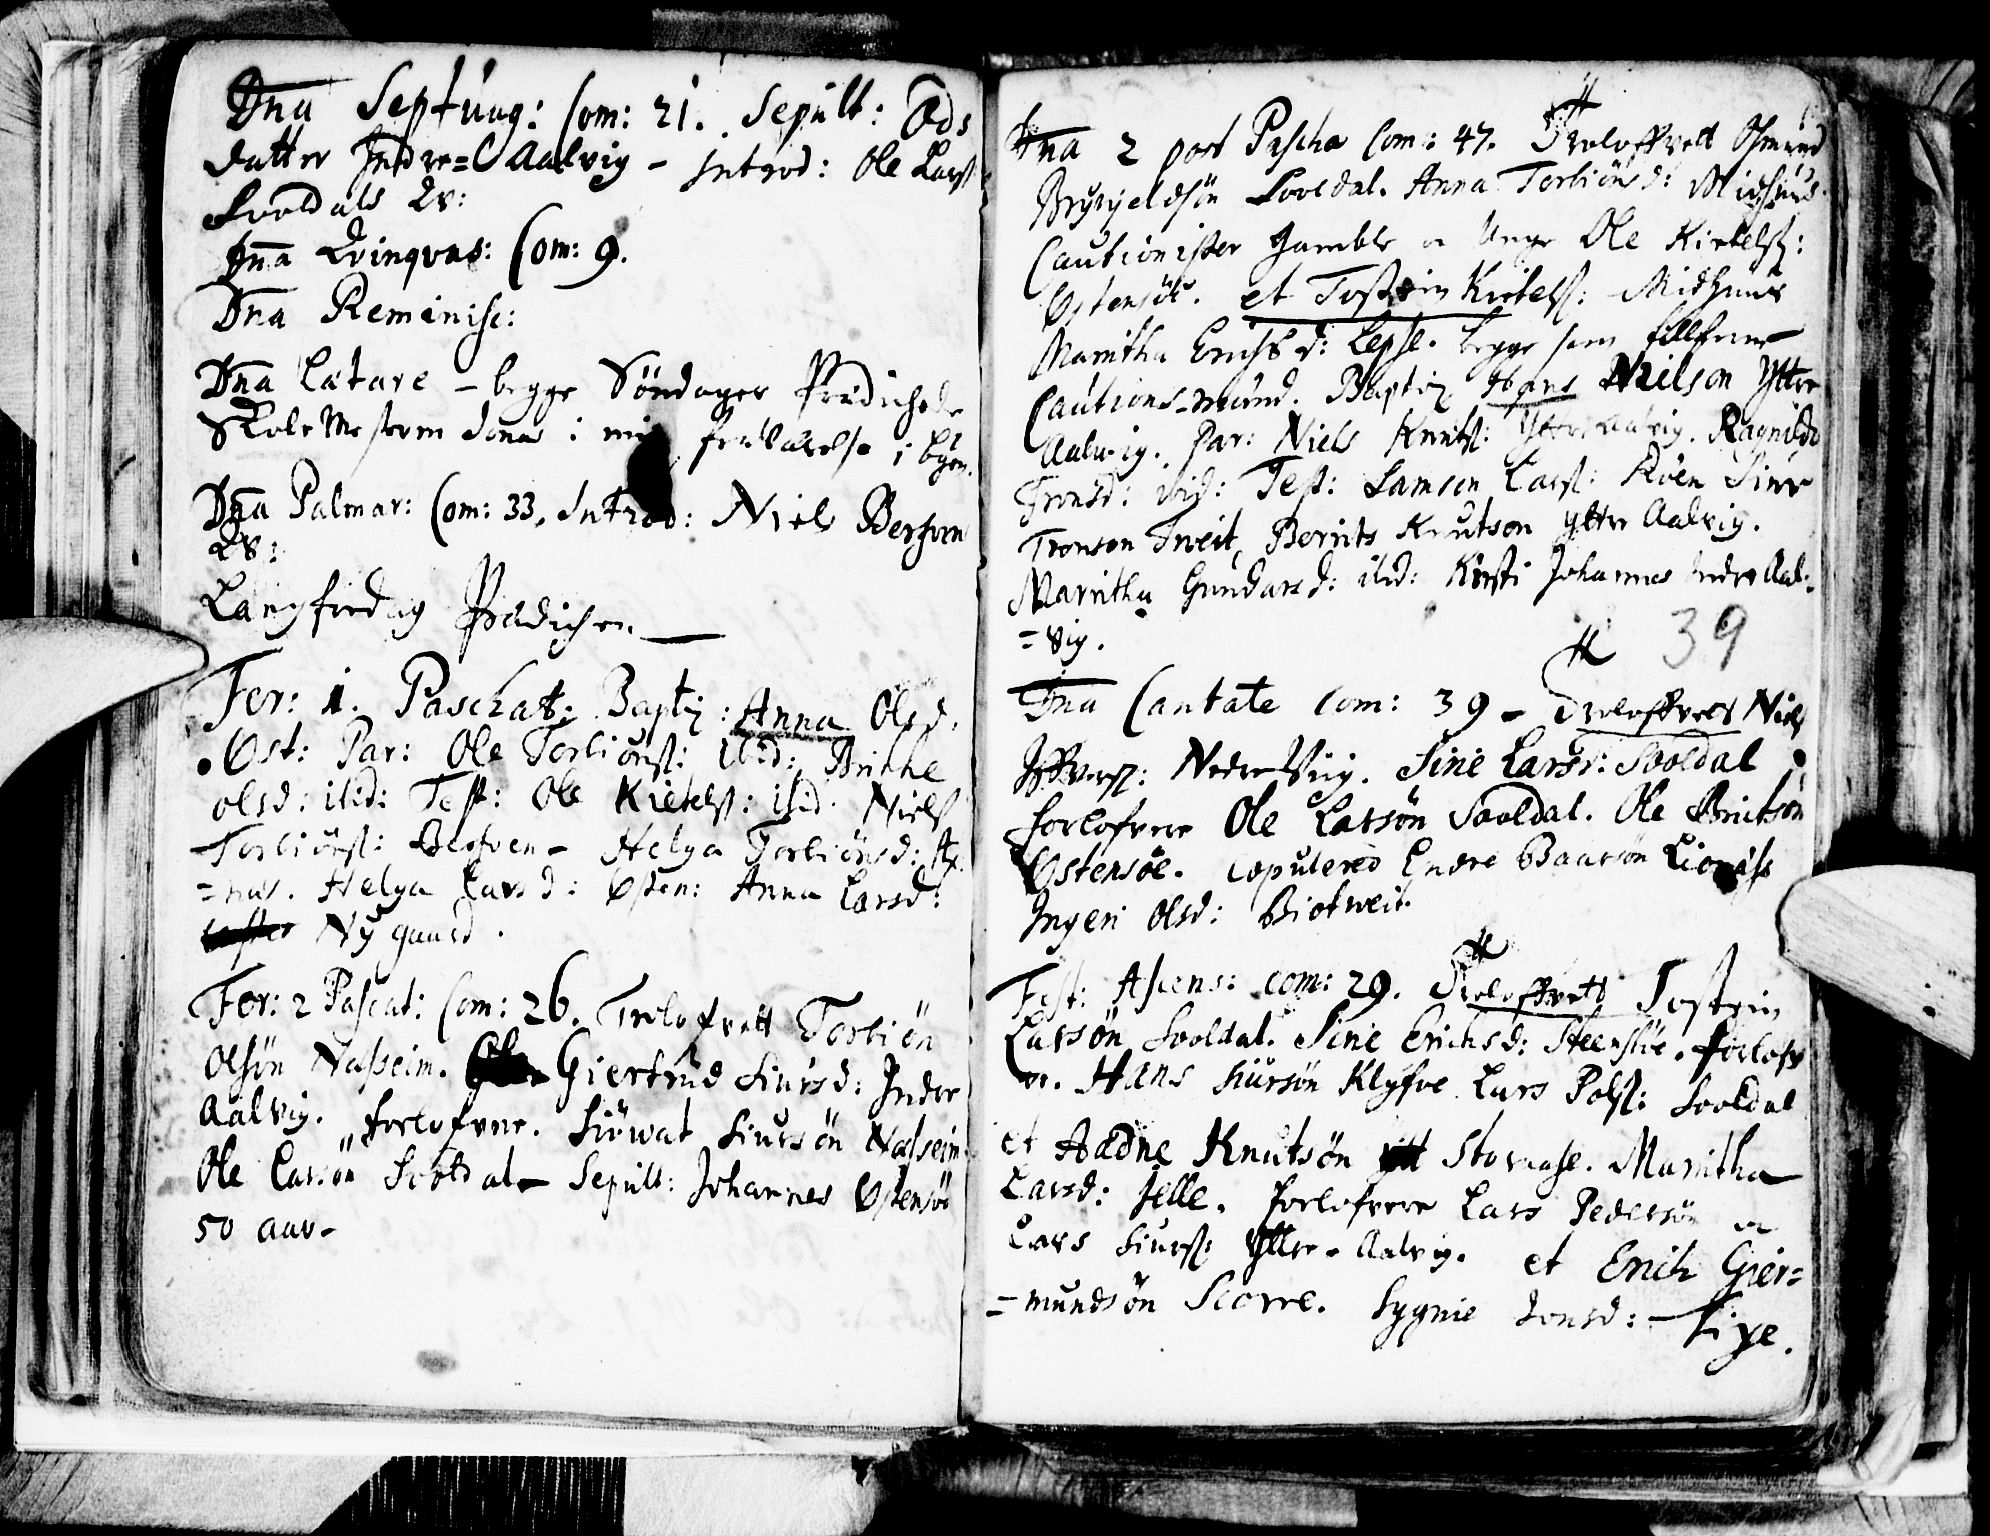 Dna Septuag: Com: 21. Sepult: Ods
datter Indre=Aalvig – Introd: Ole Lars:
Sooldals Qv:
Dna Qvinqvag: Com: 9.
Dna Reminisc:
Dna Lætare – begge Söndager Prædichede
SkoleMesteren i min fraværelse i byen.
Dna Palmar: Com: 33. Introd: Niels Berfven
Qv:
Langfredag Prædichen
Fer: 1. Paschat: Baptiz: Anna Olsd.
Öst: Par: Ole Torbiöns: ibid: Brithe
olsd: ibid: Test: Ole Kietels: ibid. Niels
Torbiöns: Berfven – Helga Torbiönsd:
=nus. Helga Larsd: Östen: Anna Larsd:
Nÿgaard.
Fer: 2 Pascat: Com: 26. Trolofvett Torbiön
Olsön Nasseim. Giertrud Siursd: Indre
Aalvig. forlofvere. Siöwat Siursön Nasseim
Ole Larsön Sooldal – Sepult: Johannes Östensöe
50 aar –
Dna 2 post Pascha Com: 47. Troloffvett Osmund
Brynjeldsön Sooldal. Anna Torbiönsd: Midhuus.
Cautionister gamble oc Unge Ole Kietels:
Östensöe. et Tostein Kietels: Midhuus
Maritha Erichsd: Lepse. begge sem
Cautions-mænd. Baptiz. Hans Nielson Yttre
Aalvig. Par: Niels Knuts: Yttre Aalvig. Ragnilde
Tronsd: ibid: Test: Samson Lars: Roen Siur
Tronson Tveit, Berrits Knutson Yttre Aalvig.
Maritha Gundarsd: ibid: Kirsti Johannes Indre Aal-
=vig.
39
Dna Cantate Com: 39 – Troloffvett Niels
Iffvers: Nedre Viig. Sine Larsd: Sooldal
forlofvere Ole Larsön Sooldal. Ole Brictsön
Östensöe. Copulered Endre Baarsön
Ingeri olsd: Biotweit.
Fest: Ascens: Com: 29. Troloffvett Tostein
Larsön Sooldal. Sine Erichsd: Steenstöe. forlofv
er. Hans Siursön Klÿfve Lars Pols: Sooldal
et Aadne Knutsön Storaase. Maritha
Larsd: Jelle. forlofvere Lars Pedersön oc
Lars Siurs: Yttre-Aalvig. et Erich Gier=
=mundsön Scorre. Sygnie Jonsd: – Lixe.